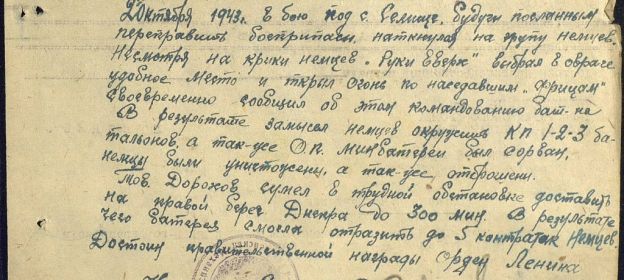 2 Октября 1943г. в бою под с. Селище, будучи посланным
переправить боеприпасы, наткнулся на групу немцев.
Несмотря на крики немцев „Руки вверх" выбрал в овраге
удобное место и ткрыл огонь по наседавшим „Фрицам"
своевременно сообщил об этом командованию бат-на
В результате замысел немцев окружить КП 1-2-3 ба-
тальонов, а так-же О.П. минбатереи был сорван,
немцы были уничтожены, а так-же отброшены.
Тов. Дорохов сумел в трудной обстановке доставить
на правой берег Днепра до 300 мин. В результате
чего батерея смогла отразить до 5 контратак немцев.
Достоин правительственной награды Орден Ленина